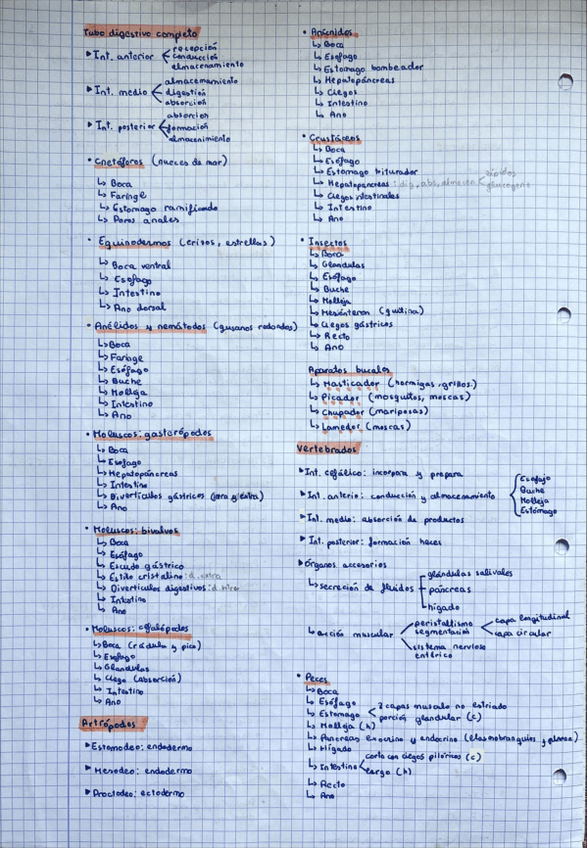 Tubo digestivo completo
▸ Int. anterior < recepción
conducción
almacenamiento
▸ Int. medio < almacenamiento
digestión
absorción
▸ Int. posterior < absorción
formación
almacenimiento
• Cnetóforos (nueces de mar)
↳ Boca
↳ Faringe
↳ Estomago ramificado
↳ Poros anales
• Equinodermos (erizos, estrellas)
↳ Boca ventral
↳ Esofago
↳ Intestino
↳ Ano dorsal
• Anélidos y nemátodos (gusanos redondos)
↳ Boca
↳ Faringe
↳ Esófago
↳ Buche
↳ Molleja
↳ Intestino
↳ Ano
• Moluscos: gasterópodos
↳ Boca
↳ Esofago
↳ Hepatopáncreas
↳ Intestino
↳ Divertículos gástricos (intra y extra)
↳ Ano
• Moluscos: bivalvos
↳ Boca
↳ Esófago
↳ Escudo gástrico
↳ Estilo cristalino: d. extra
↳ Diverticulos digestivos: d. intra
↳ Intestino
↳ Ano
• Moluscos: cefalópodos
↳ Boca (rádula y pico)
↳ Esofago
↳ Glandulas
↳ Ciego (absorción)
↳ Intestino
↳ Ano
Artrópodos
▸ Estomodeo: endodermo
▸ Mesodeo: endodermo
▸ Proctodeo: ectodermo
• Arácnidos
↳ Boca
↳ Esófago
↳ Estomago bombeador
↳ Hepatopáncreas
↳ Ciegos
↳ Intestino
↳ Ano
• Crustáceos
↳ Boca
↳ Esófago
↳ Estomago triturador
↳ Hepatopancreas: dig, abs, almacén < lípidos
glucogeno
↳ Ciegos intestinales
↳ Intestino
↳ Ano
• Insectos
↳ Boca
↳ Glandulas
↳ Esófago
↳ Buche
↳ Molleja
↳ Mesénteron (quitina)
↳ Ciegos gástricos
↳ Recto
↳ Ano
Aparatos bucales
↳ Masticador (hormigas, grillos.)
↳ Picador (mosquitos, moscas)
↳ Chupador (mariposas)
↳ Lamedor (moscas)
Vertebrados
▸ Int. cefálico: incorpora y prepara
▸ Int. anterio: conducción y almacenamiento { Esófajo
Buche
Molleja
Estómago
▸ Int. medio: absorción de productos
▸ Int. posterior: formación heces
▸ Órganos accesorios
↳ secreción de fluidos glándulas salivales
páncreas
hígado
↳ acción muscular < peristaltismo
segmentación < capa longitudinal
capa circular
sistema nervioso
entérico
• Peces
↳ Boca
↳ Esófago
↳ Estomago < 2 capas musculo no estriado
porción glandular (c)
↳ Molleja (h)
↳ Pancreas exocrino y endocrino (elasmobranquios y pulmon)
↳ Hígado
↳ Intestino < corto con ciegos pilóricos (c)
largo (h)
↳ Recto
↳ Ano